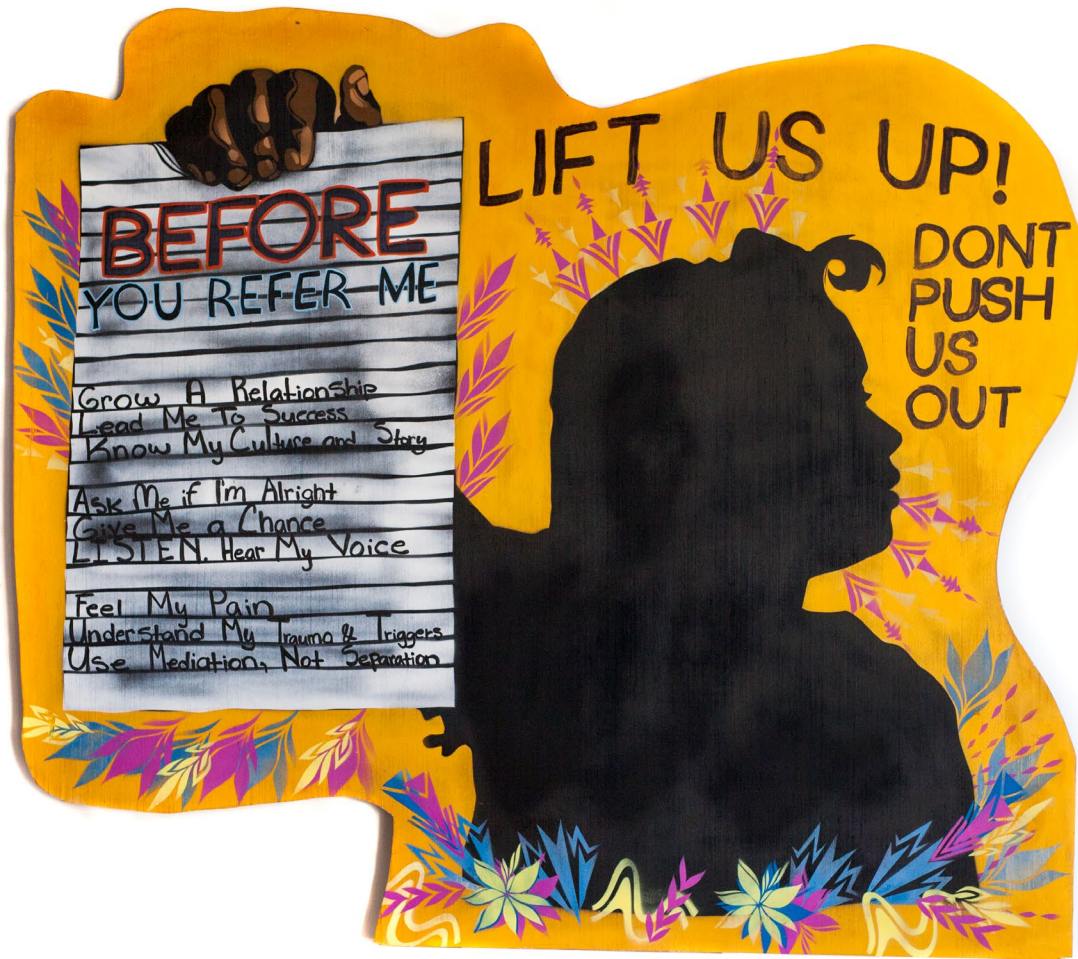 BEFORE
YOU REFER ME
Grow A Relationship
Lead Me To Success
Know My Culture and Story
Ask Me if I'm Alright
Give Me a Chance
LISTEN. Hear My Voice
Feel My Pain
Understand My Trauma & Triggers
Use Mediation, Not Separation
LIFT US UP!
DONT
PUSH
US
OUT